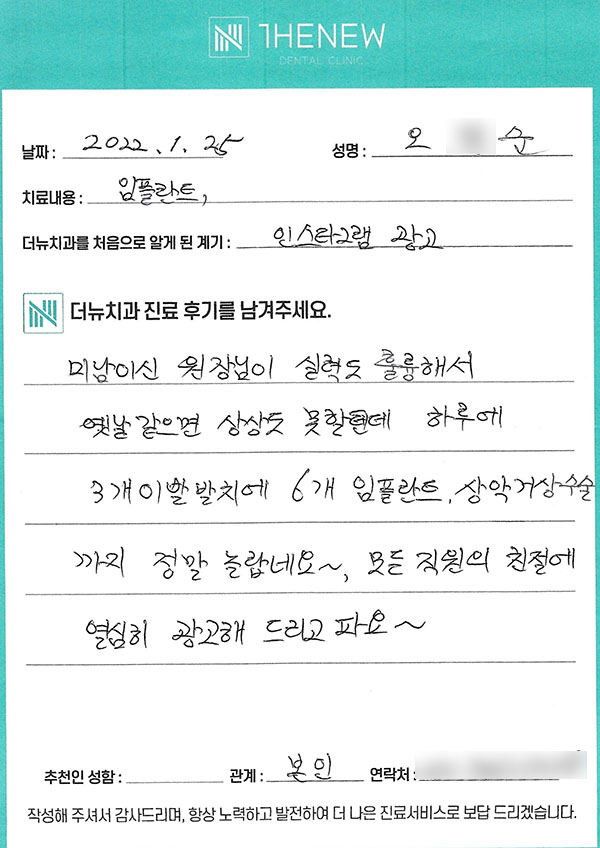 THENEW
DENTAL CLINIC
날짜 : 2022.1.25 성명 : 오 순
치료내용 : 임플란트,
더뉴치과를 처음으로 알게 된 계기 : 인스타그램 광고
더뉴치과 진료 후기를 남겨주세요.
미남이신 원장님이 실력도 훌륭해서
옛날 같으면 상상도 못할텐데 하루에
3개 이빨 발치에 6개 임플란트, 상악거상수술
까지 정말 놀랍네요~, 모든 직원의 친절에
열심히 광고해 드리고 파요~
추천인 성함 : 관계 : 본인 연락처 :
작성해 주셔서 감사드리며, 항상 노력하고 발전하여 더 나은 진료서비스로 보답 드리겠습니다.